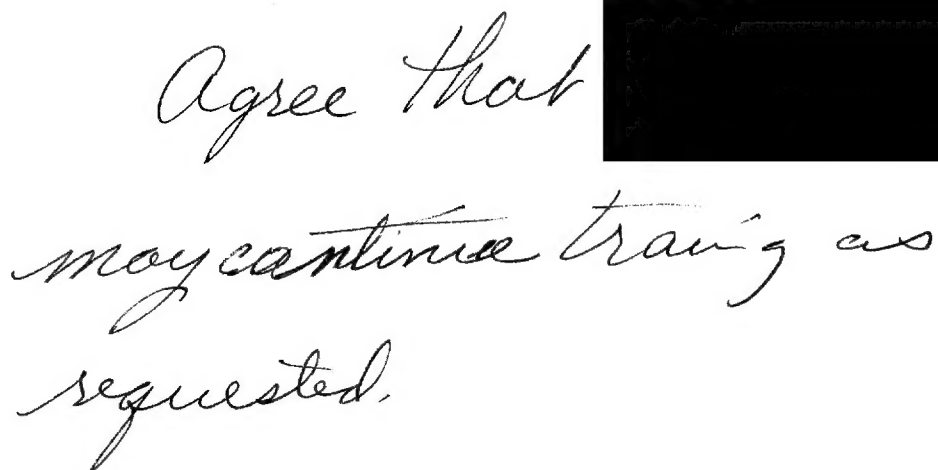 Agree that
may continue traing as
requested.